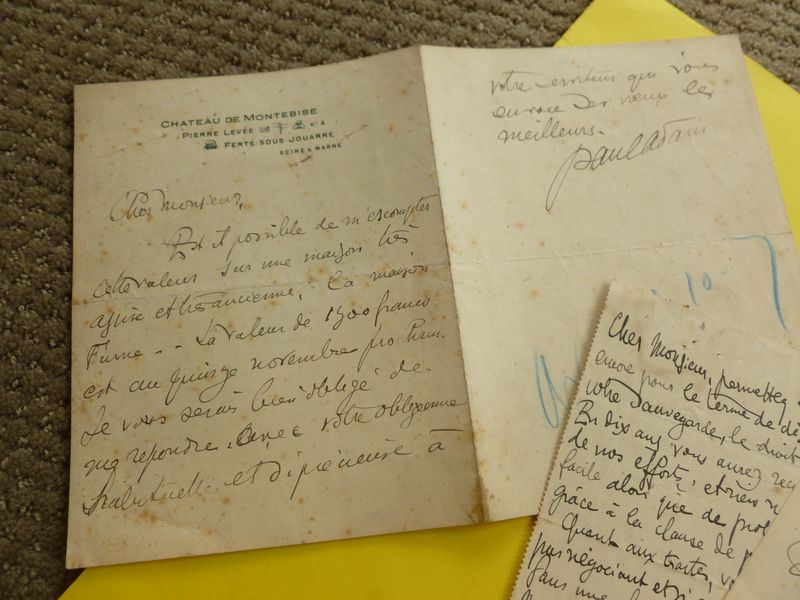 CHATEAU DE MONTEBISE
PIERRE LEVÉE N° 4
FERTÉ-SOUS-JOUARRE
SEINE & MARNE
Cher Monsieur,
Est il possible de m'escompter
cette valeur sur une maison très
assise et très ancienne. La maison
Furne - . La valeur de 1500 francs
est au quinze novembre prochain.
Je vous serais bien obligé de
me répondre avec votre obligeance
habituelle et si précieuse à
votre serviteur qui vous
envoie ses vœux les
meilleurs.
Paul Adam
10
Cher Monsieur, permettez
encore pour le terme de
votre sauvegarde, le droit
En dix ans vous aurez
de nos efforts, et rien
facile alors que de
grâce à la clause de
Quant aux traites,
pas négociant et
dans une